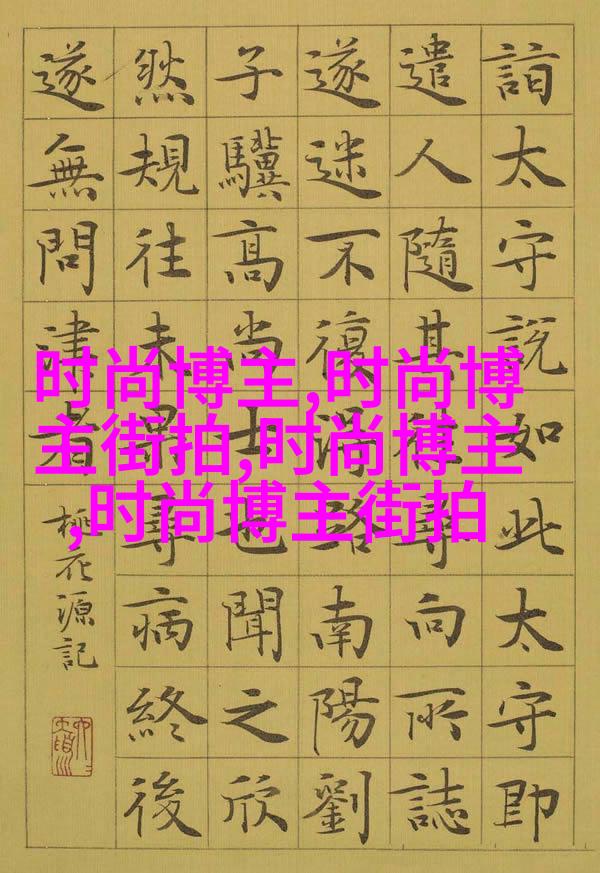 詣太守說如此太守即
遣人隨其往尋向所誌
遂迷不復得路南陽劉
子驥高尚士也聞之欣
然規往未果尋病終後
遂無問津者
桃花源記
时尚博主,时尚博
主街拍,时尚博主
,时尚博主街拍